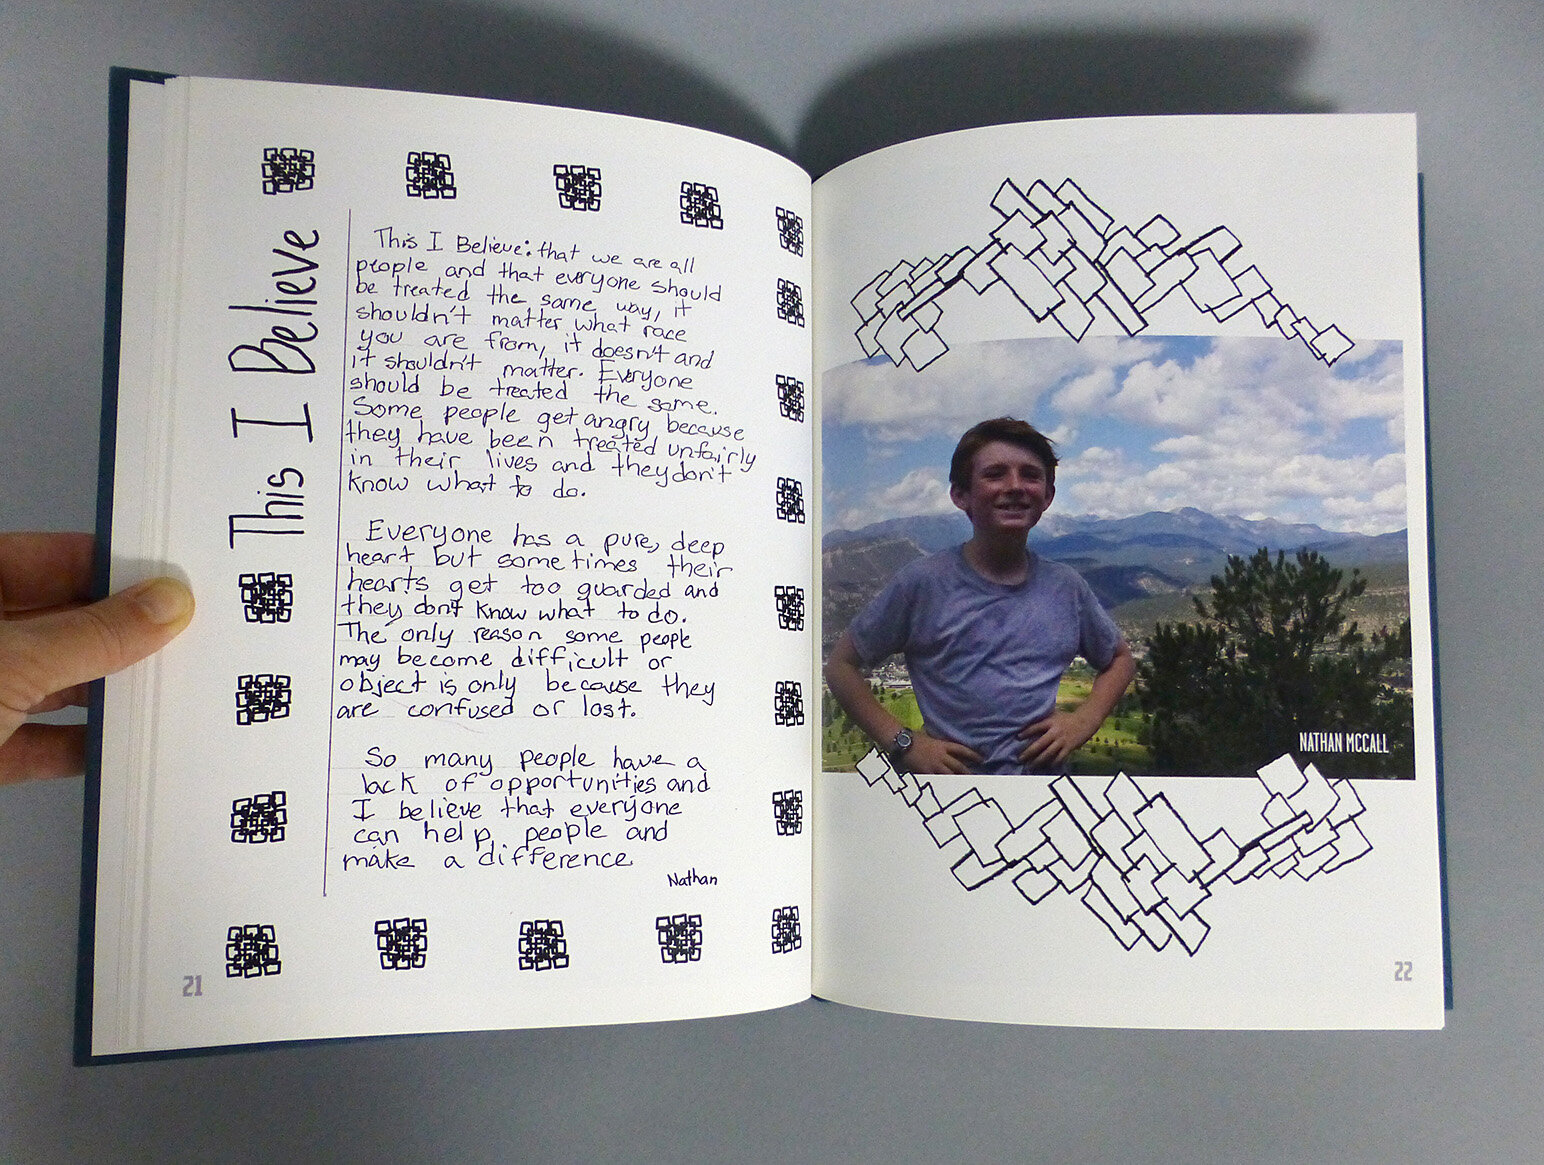 This I Believe
This I Believe: that we are all
people and that everyone should
be treated the same way, it
shouldn't matter what race
you are from, it doesn't and
it shouldn't matter. Everyone
should be treated the same.
Some people get angry because
they have been treated unfairly
in their lives and they don't
know what to do.
Everyone has a pure, deep
heart but sometimes their
hearts get too guarded and
they don't know what to do.
The only reason some people
may become difficult or
object is only because they
are confused or lost.
So many people have a
lack of opportunities and
I believe that everyone
can help people and
make a difference
Nathan
21
NATHAN MCCALL
22